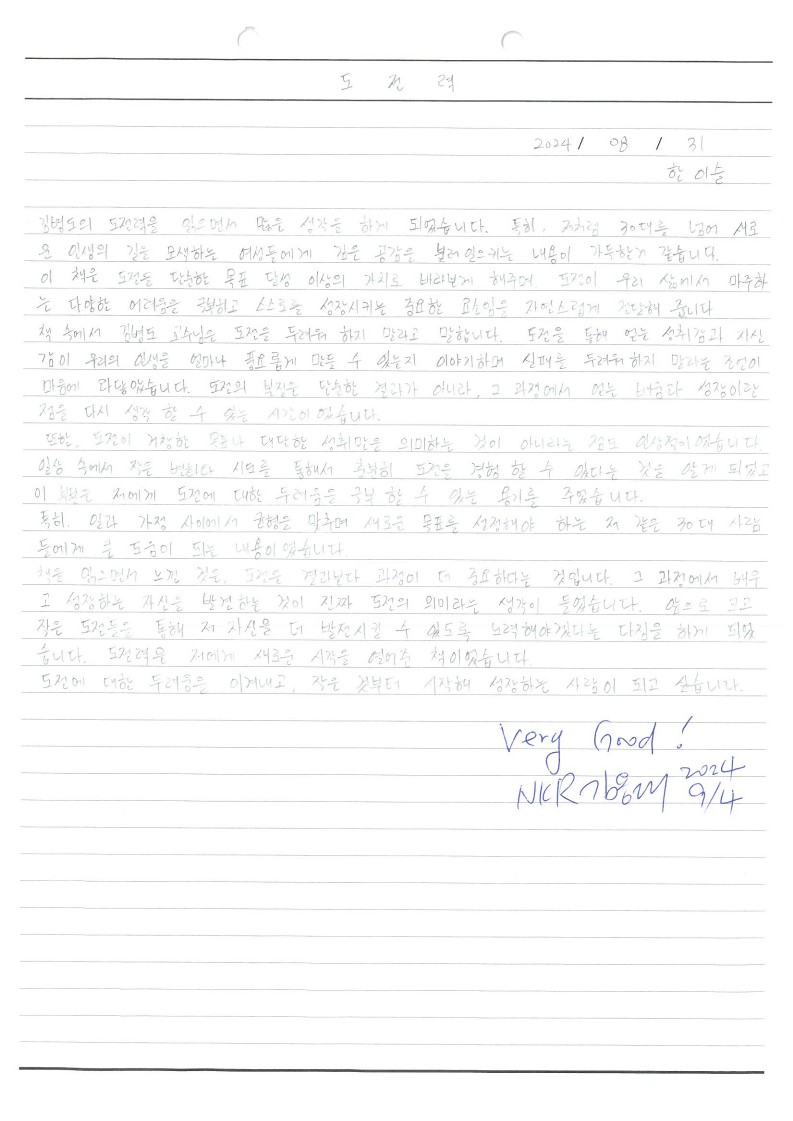 도 전 력
2024 / 08 / 31
한 이슬
김병도의 도전력을 읽으면서 많은 생각을 하게 되었습니다. 특히, 저처럼 30대를 넘어 새로
운 인생의 길을 모색하는 여성들에게 깊은 공감을 불러일으키는 내용이 가득한거 같습니다.
이 책은 도전을 단순한 목표 달성 이상의 가치로 바라보게 해주며, 도전이 우리 삶에서 마주하
는 다양한 어려움을 극복하고 스스로를 성장시키는 중요한 요소임을 자연스럽게 전달해 줍니다
책 속에서 김병도 교수님은 도전을 두려워 하지 말라고 말합니다. 도전을 통해 얻는 성취감과 자신
감이 우리의 인생을 얼마나 풍요롭게 만들 수 있는지 이야기하며 실패를 두려워하지 말라는 조언이
마음에 와닿았습니다. 도전의 본질은 단순한 결과가 아니라, 그 과정에서 얻는 배움과 성장이란
점을 다시 생각 할 수 있는 시간이었습니다.
또한, 도전이 거창한 목표나 대단한 성취만을 의미하는 것이 아니라는 점도 인상적이었습니다.
일상 속에서 작은 변화나 시도를 통해서 충분히 도전을 경험 할 수 있다는 것을 알게 되었고
이 책은 저에게 도전에 대한 두려움을 극복 할 수 있는 용기를 주었습니다.
특히, 일과 가정 사이에서 균형을 맞추며 새로운 목표를 설정해야 하는 저 같은 30대 사람
들에게 큰 도움이 되는 내용이었습니다.
책을 읽으면서 느낀 것은, 도전은 결과보다 과정이 더 중요하다는 것입니다. 그 과정에서 배우
고 성장하는 자신을 발견하는 것이 진짜 도전의 의미라는 생각이 들었습니다. 앞으로 크고
작은 도전들을 통해 저 자신을 더 발전시킬 수 있도록 노력해야겠다는 다짐을 하게 되었
습니다. 도전력은 저에게 새로운 시작을 열어준 책이었습니다.
도전에 대한 두려움을 이겨내고, 작은 것부터 시작해 성장하는 사람이 되고 싶습니다.
Very Good!
NKR 2024
9/4